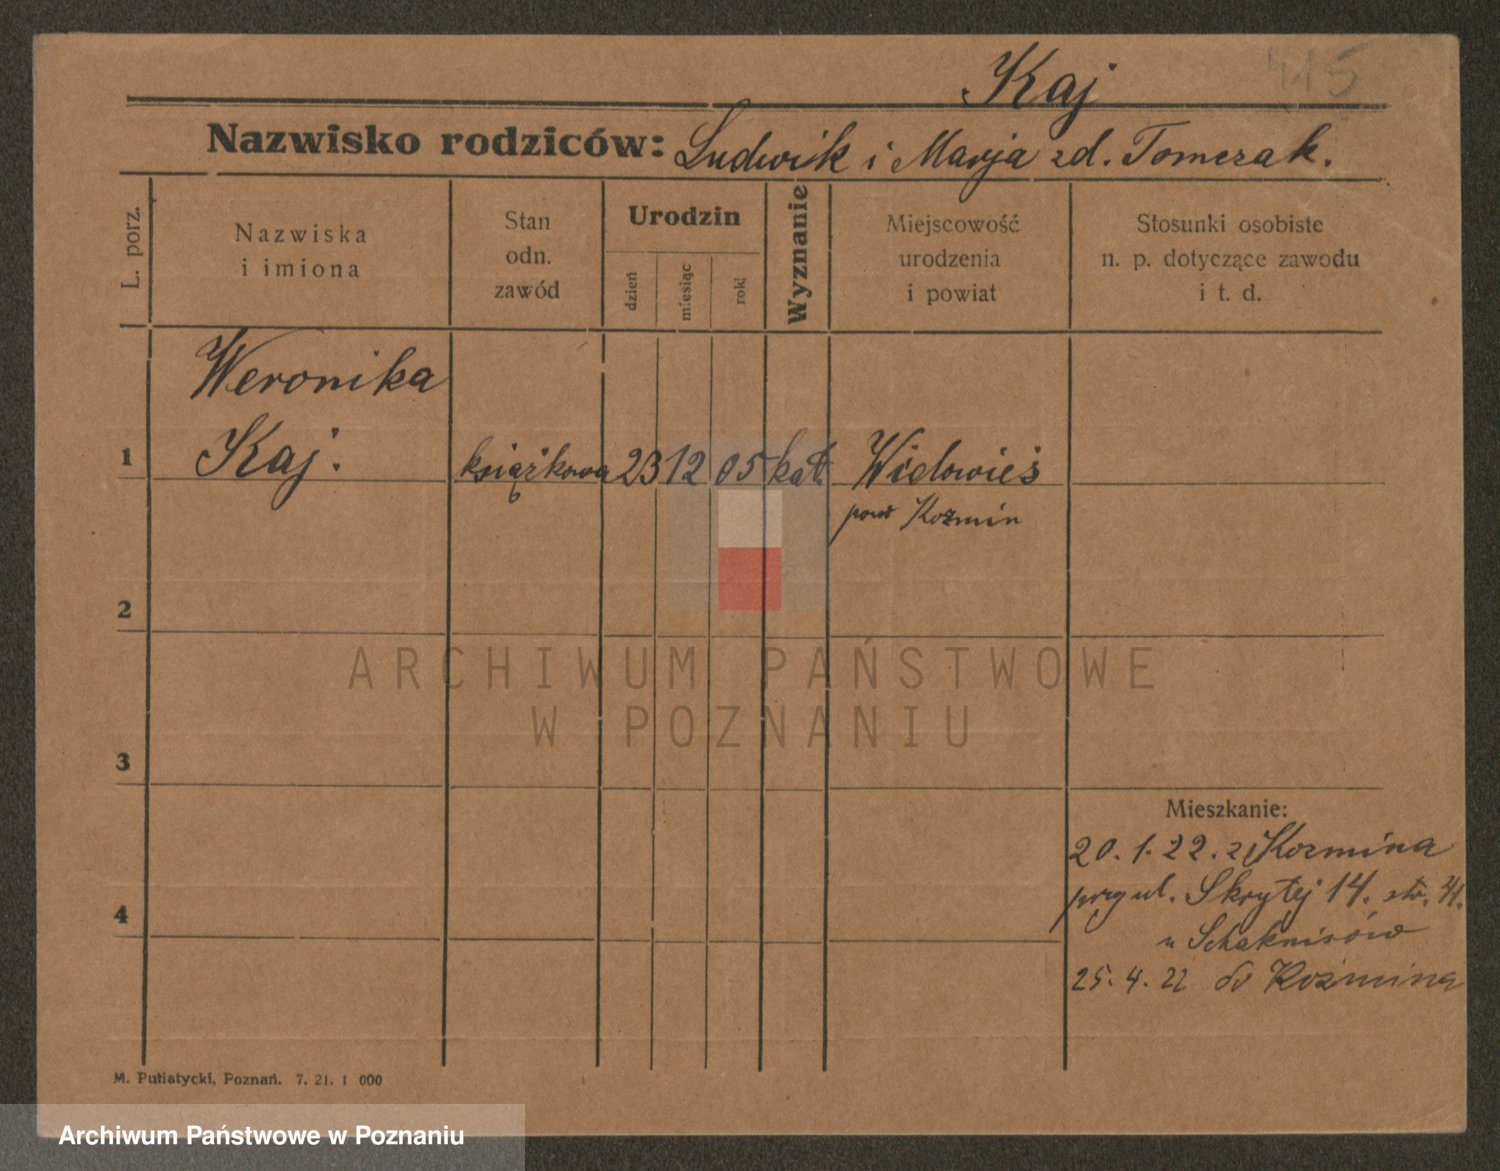 Kaj
415
Nazwisko rodziców: Ludwik i Marja zd. Tomczak.
L. porz.
Nazwiska
i imiona
Stan
odn.
zawód
Urodzin
dzień
miesiąc
rok
Wyznanie
Miejscowość
urodzenia
i powiat
Stosunki osobiste
n. p. dotyczące zawodu
i t. d.
Weronika
1 Kaj. książkowa 23 12 05 kat. Widowieś
pow Koźmin
2
ARCHIWUM PAŃSTWOWE
W POZNANIU
3
Mieszkanie:
20. 1. 22. z Kozmina
przy ul. Skrytej 14. str.
4
u
25. 4. 22 do Koźmina
M. Putiatycki, Poznań. 7. 21. 1 000
Archiwum Państwowe w Poznaniu